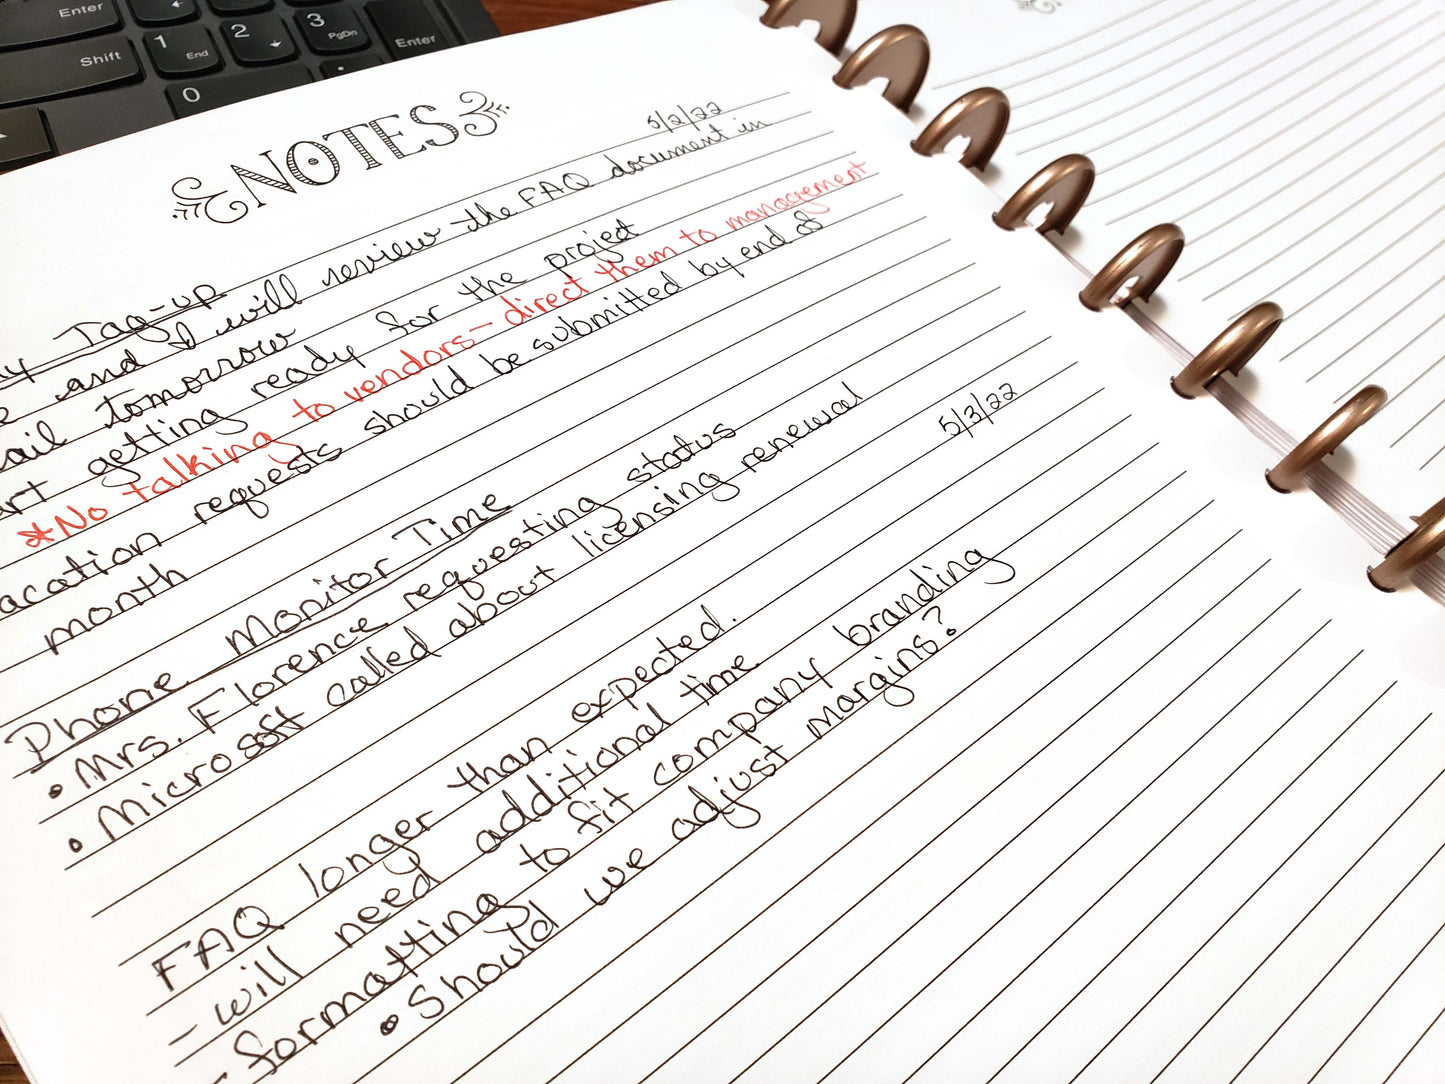 Enter
Shift
1 End
2
3 PgDn
Enter
0
NOTES
5/2/22
Tag-up
and I will review the FAQ document in
tomorrow
getting ready for the project
*No talking to vendors - direct them to management
requests should be submitted by end of
month
Phone Monitor Time
• Mrs. Florence requesting status
• Microsoft called about licensing renewal
5/3/22
FAQ longer than expected.
- will need additional time
- formatting to fit company branding
• Should we adjust margins?